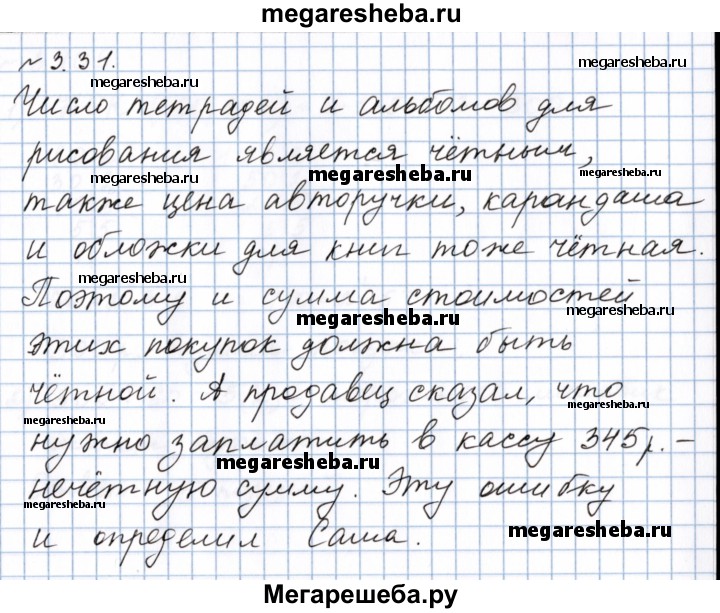 megaresheba.ru
№ 3.31.
megaresheba.ru
Число тетрадей и альбомов для
рисования является чётным,
megaresheba.ru megaresheba.ru megaresheba.ru
также цена авторучки, карандаша
и обложки для книг тоже чётная.
megaresheba.ru
Поэтому и сумма стоимостей
megaresheba.ru megaresheba.ru
этих покупок должна быть
чётной. А продавец сказал, что
megaresheba.ru megaresheba.ru
нужно заплатить в кассу 345р.–
megaresheba.ru
нечётную сумму. Эту ошибку
и определил Саша.
megaresheba.ru megaresheba.ru
Мегарешеба.ру